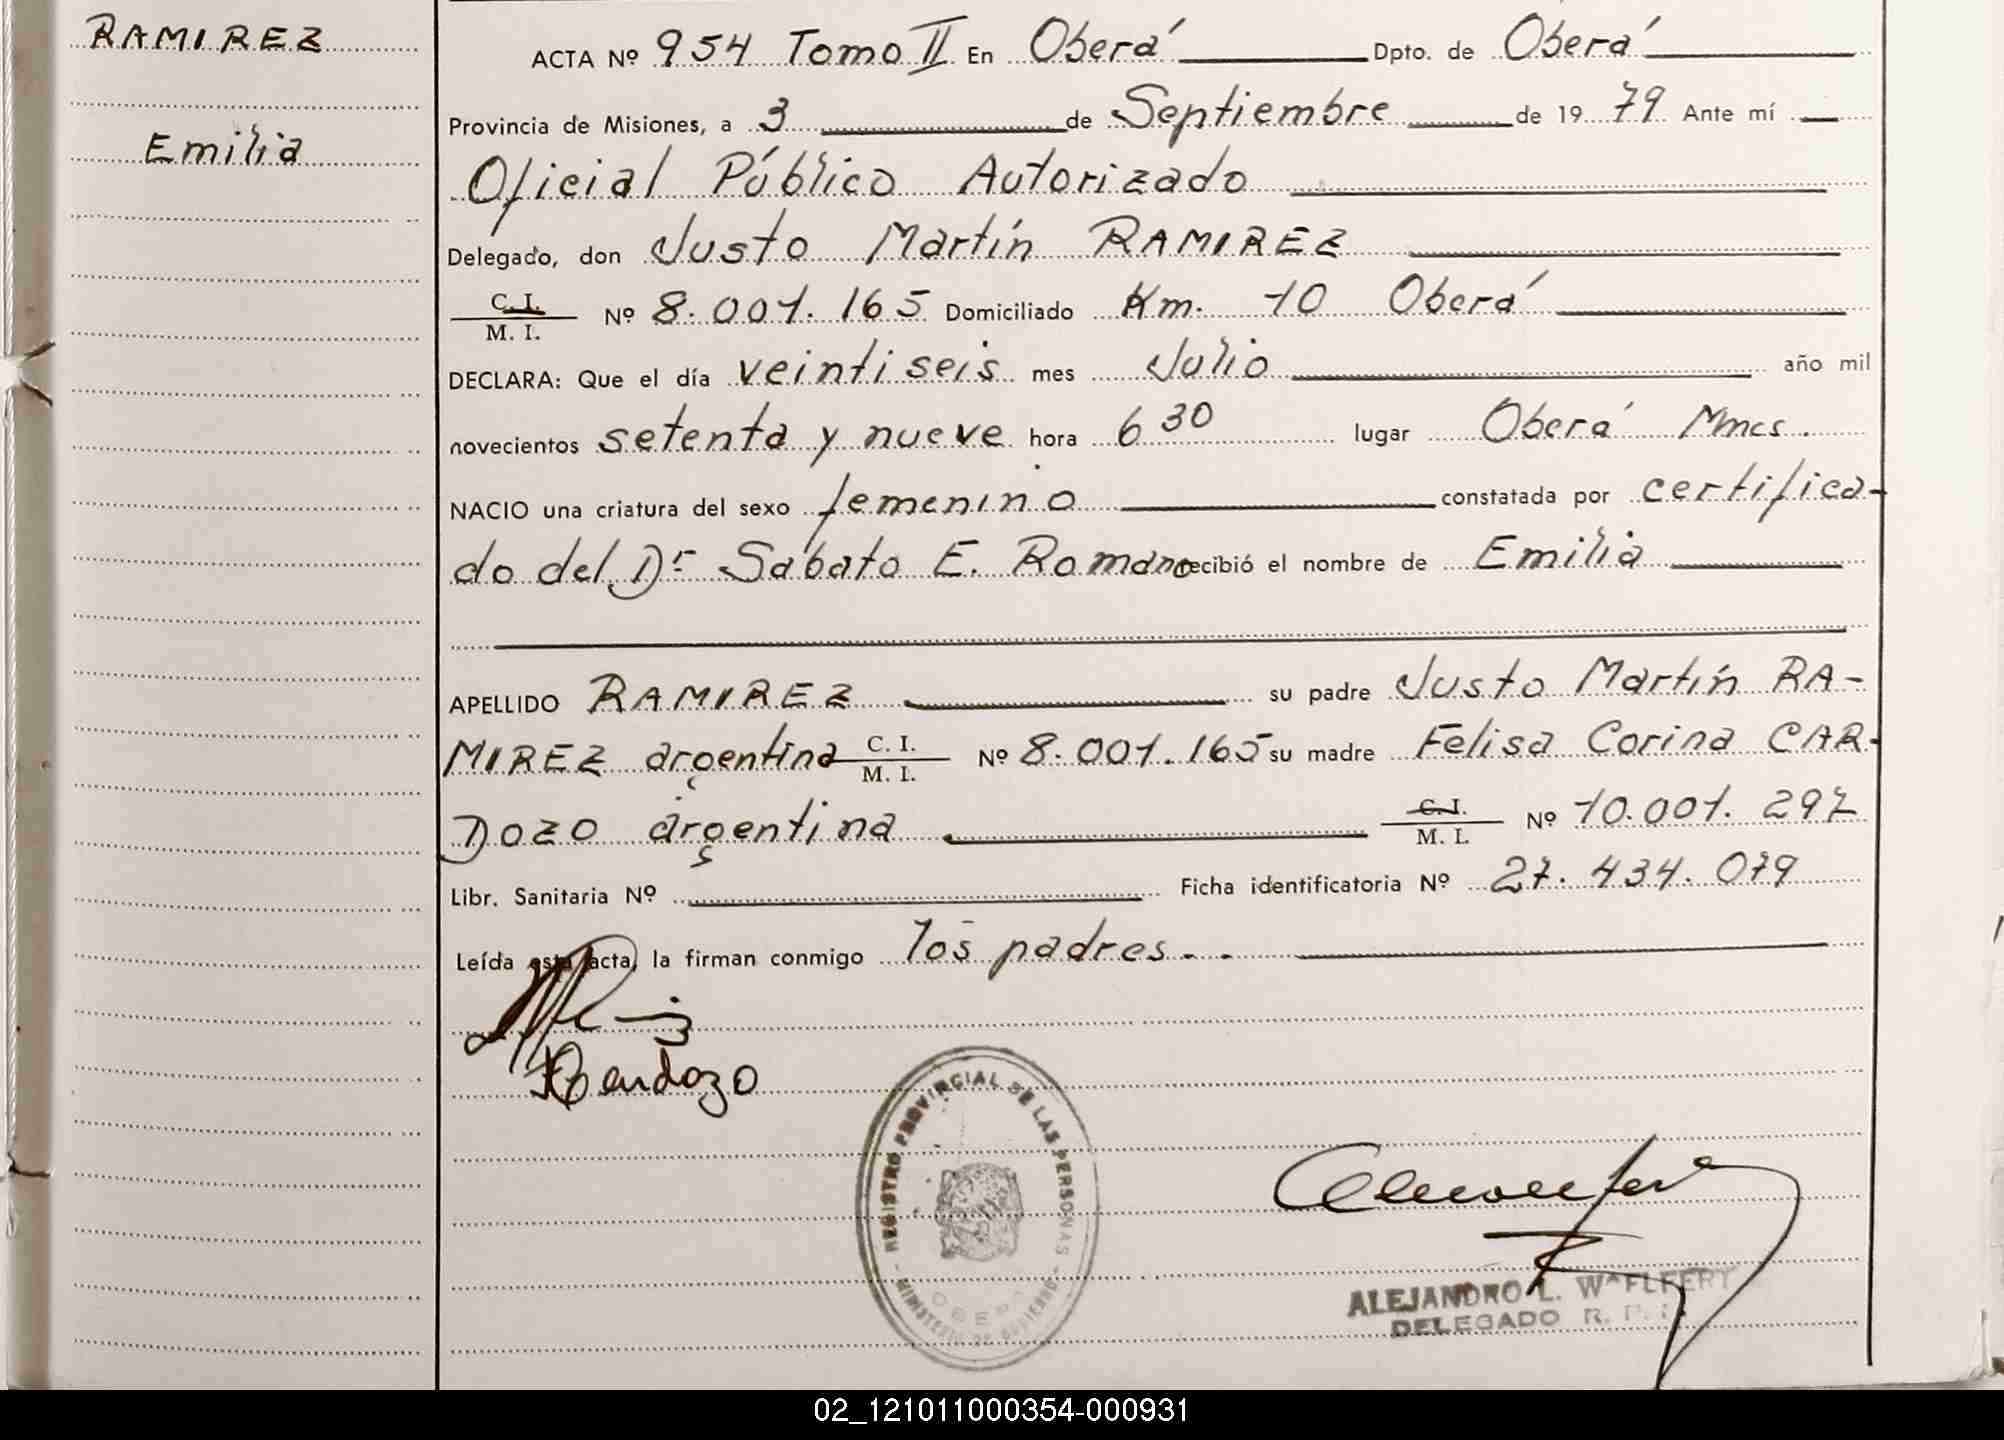 RAMIREZ
Emilia
ACTA Nº 954 Tomo II En Oberá Dpto. de Oberá
Provincia de Misiones, a 3 de Septiembre de 1979 Ante mí
Oficial Público Autorizado
Delegado, don Justo Martín RAMIREZ
C. I.
M. I. Nº 8.001.165 Domiciliado Km. 10 Oberá
DECLARA: Que el día veintiseis mes Julio año mil
novecientos setenta y nueve hora 6 30 lugar Oberá Mnes.
NACIO una criatura del sexo femenino constatada por certifica-
do del Dr Sabato E. Romano recibió el nombre de Emilia
APELLIDO RAMIREZ su padre Justo Martín RA-
MIREZ argentina C. I. M. I. Nº 8.001.165 su madre Felisa Corina CAR-
DOZO argentina C. I. M. I. Nº 10.001.297
Libr. Sanitaria Nº Ficha identificatoria Nº 27.434.079
Leída esta acta, la firman conmigo los padres.-
REGISTRO PROVINCIAL DE LAS PERSONAS
- MINISTERIO DE GOBIERNO -
OBERA
ALEJANDRO L.
DELEGADO R. P.
02_121011000354-000931